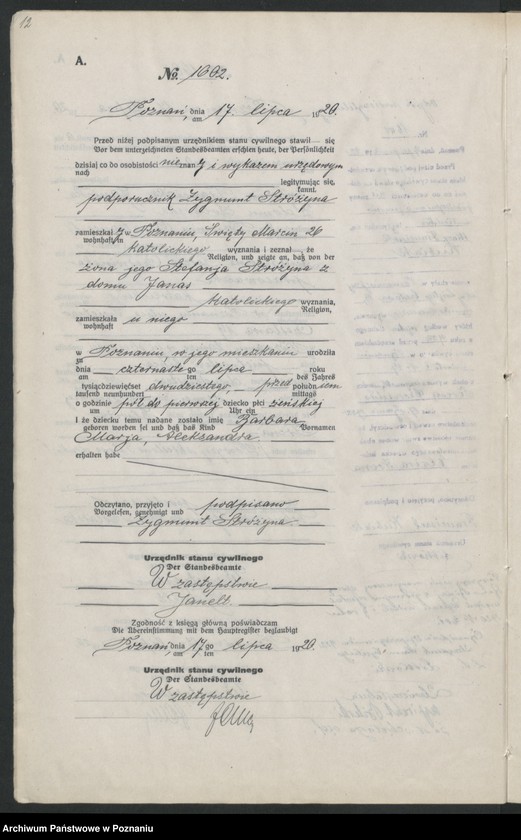 12
A.
No. 1662.
Poznań, dnia 17. lipca 1920.
am
Przed niżej podpisanym urzędnikiem stanu cywilnego stawił się
Vor dem unterzeichneten Standesbeamten erschien heute, der Persönlichkeit
dzisiaj co do osobistości nieznany i wykazem urzędowym
nach
legitymując się,
kannt.
podporucznik Zygmunt Stróżyna
zamieszkały w Poznaniu, Święty Marcin 26
wohnhaft in
katolickiego wyznania i zeznał, że
Religion, und zeigte an, daß von der
żona jego Stefanja Stróżyna z
domu Janas
katolickiego wyznania,
Religion,
zamieszkała u niego
wohnhaft
w Poznaniu, w jego mieszkaniu urodziła
zu
dnia czternastego lipca roku
am ten des Jahres
tysiącdziewięćset dwudziestego, przed południem
tausend neunhundert mittags
o godzinie pół do pierwszej dziecko płci żeńskiej
um Uhr ein
i że dziecku temu nadane zostało imię Barbara
geboren worden sei und daß das Kind Vornamen
Marja, Aleksandra.
erhalten habe
Odczytano, przyjęto i podpisano
Vorgelesen, genehmigt und
Zygmunt Stróżyna
Urzędnik stanu cywilnego
Der Standesbeamte
W zastępstwie
Zgodność z księgą główną poświadczam
Die Übereinstimmung mit dem Hauptregister beglaubigt
Poznań, dnia 17go lipca 1920.
am ten
Urzędnik stanu cywilnego
Der Standesbeamte
W zastępstwie
Archiwum Państwowe w Poznaniu